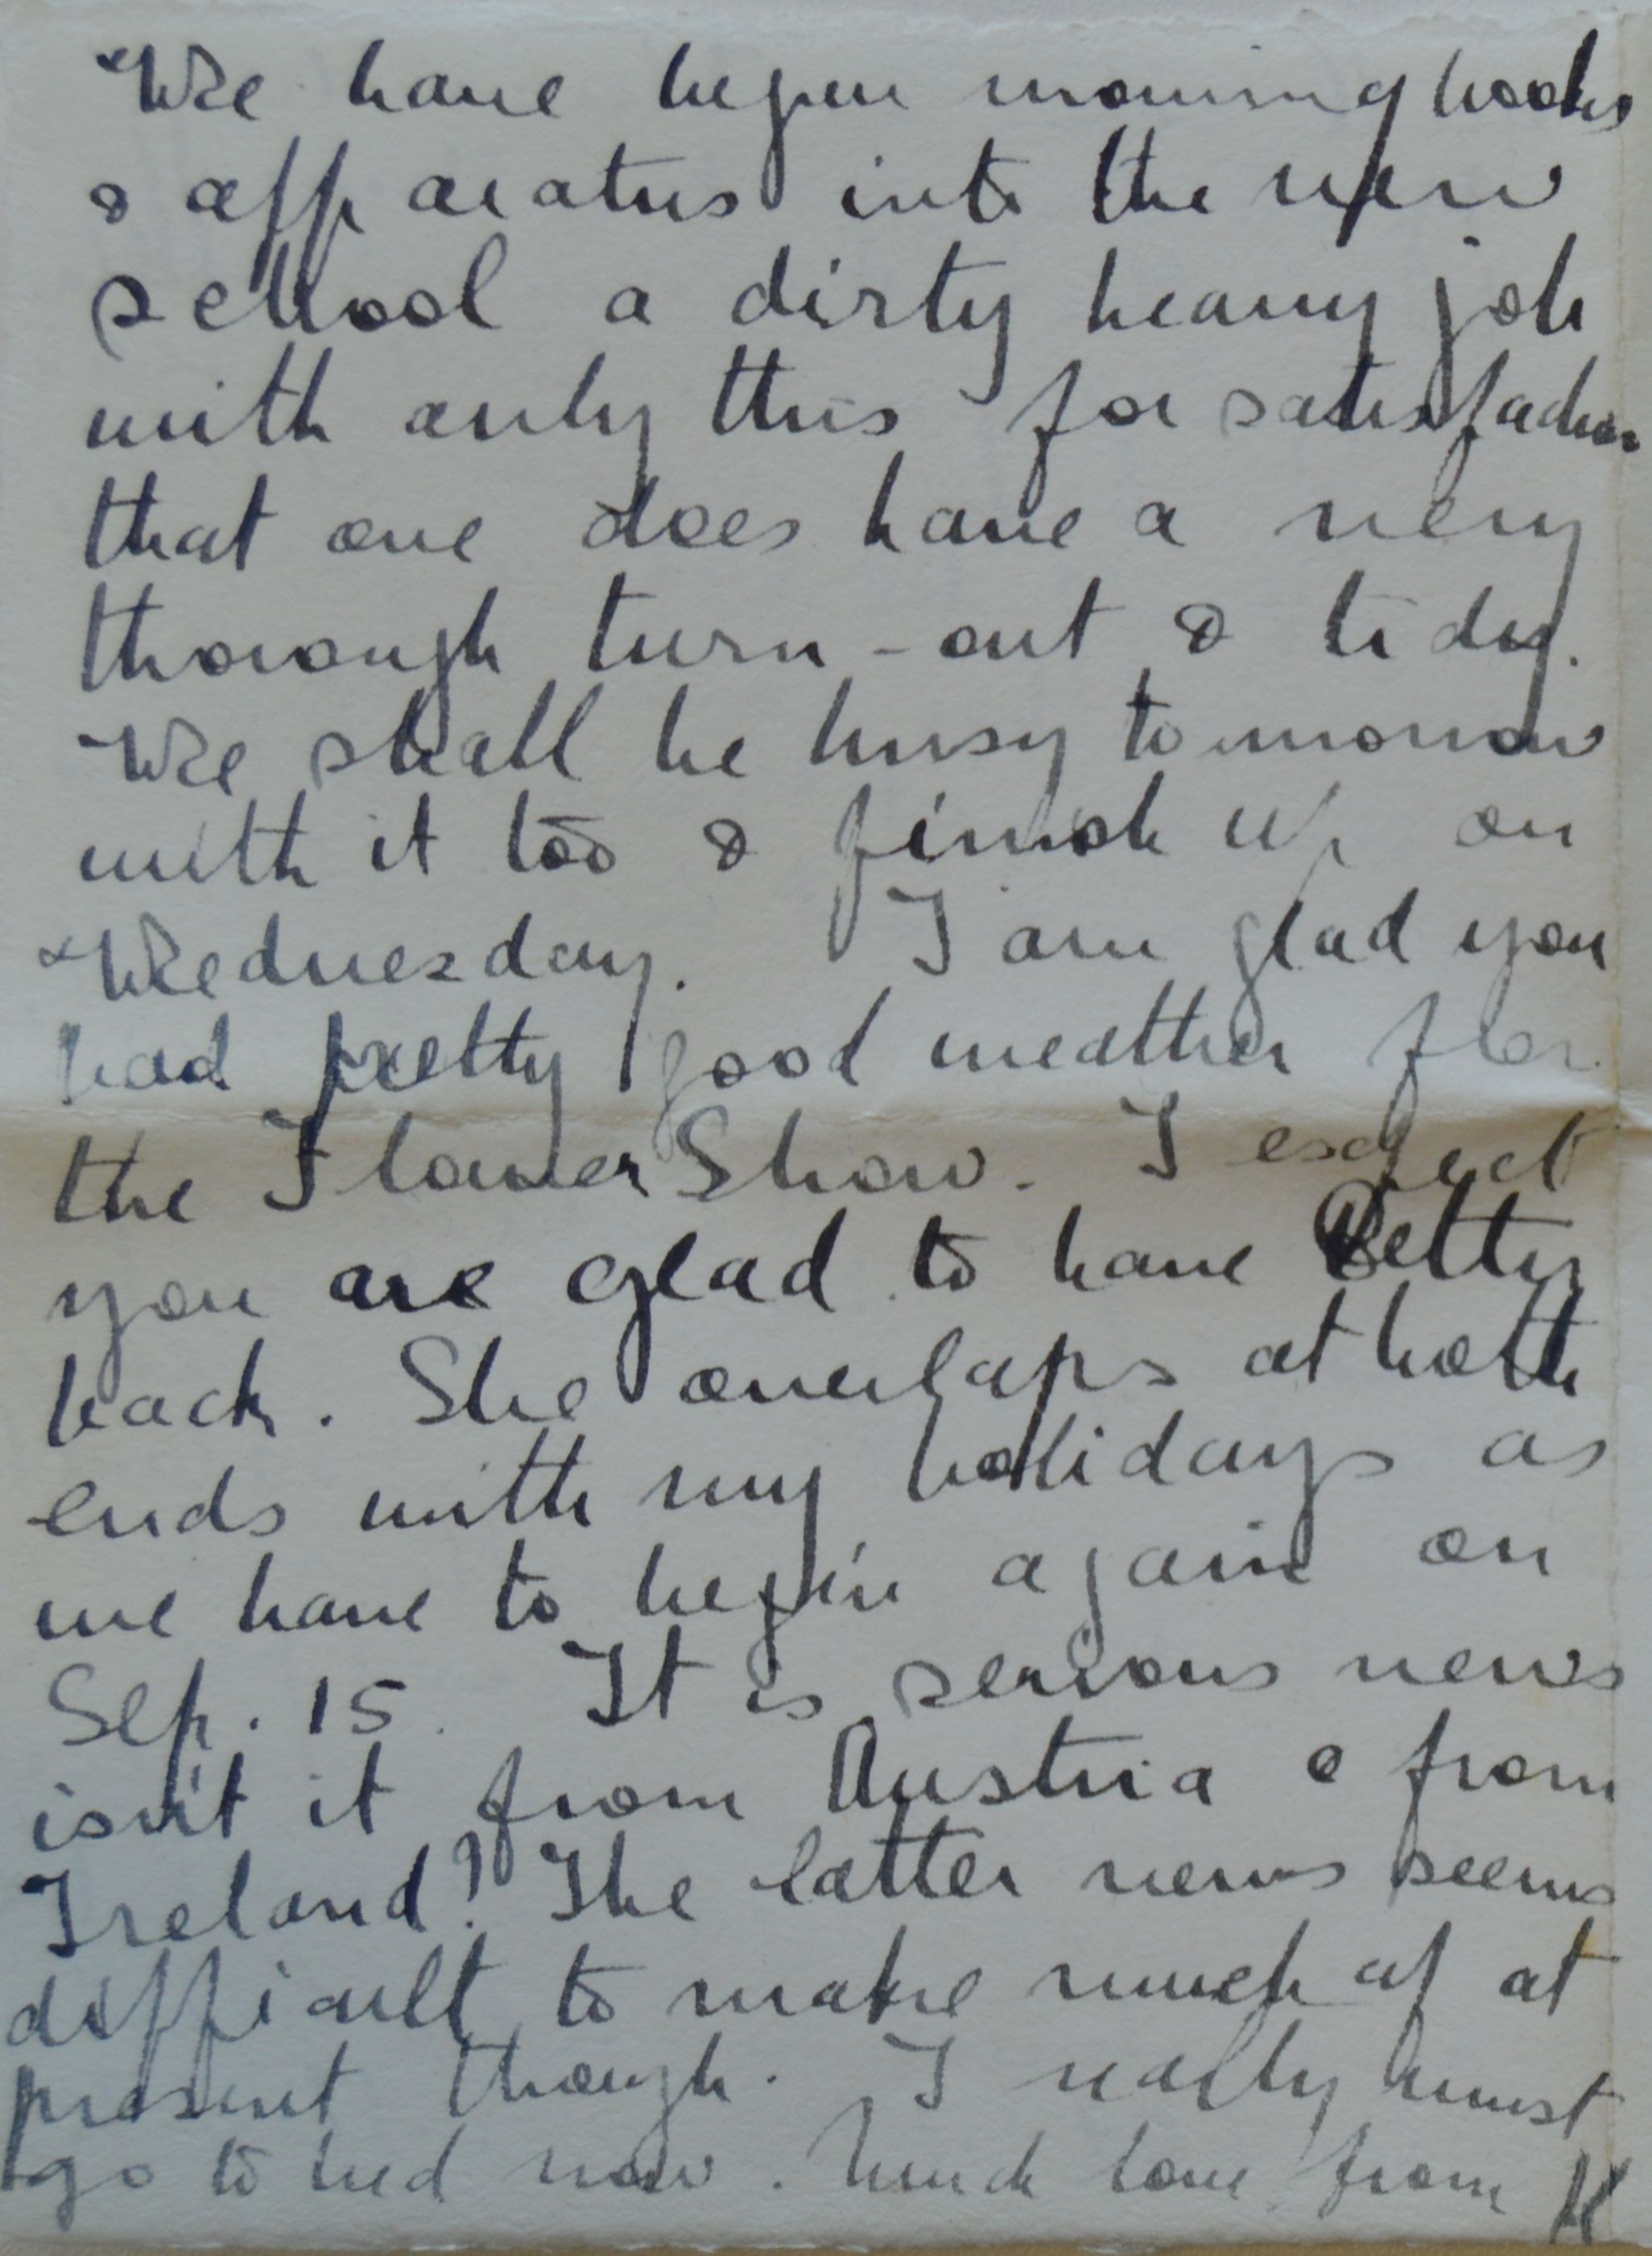 We have begun moving books
& apparatus into the new
school a dirty heavy job
with only this for satisfaction
that one does have a very
thorough turn-out & tidy.
We shall be busy tomorrow
with it too & finish up on
Wednesday. I am glad you
had pretty good weather for
the Flower Show. I expect
you are glad to have Betty
back. She overlaps at both
ends with my holidays as
we have to begin again on
Sep. 15. It is serious news
isn't it from Austria & from
Ireland? The latter news seems
difficult to make much of at
present though. I really must
go to bed now. Much love from K